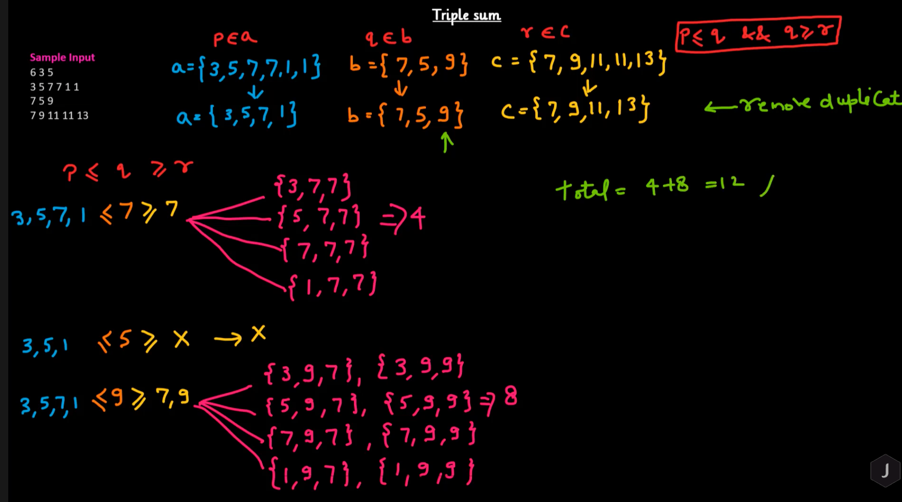 Triple sum
p∈a
q∈b
r∈c
p≤q && q≥r
Sample Input
6 3 5
3 5 7 7 1 1
7 5 9
7 9 11 11 13
a={3,5,7,7,1,1}
b={7,5,9}
c={7,9,11,11,13}
a={3,5,7,1}
b={7,5,9}
c={7,9,11,13}
←remove duplicat
p≤ q ≥r
3,5,7,1 ≤7≥7
{3,7,7}
{5,7,7} ⇒4
{7,7,7}
{1,7,7}
Total= 4+8 =12
3,5,1 ≤5≥ x →x
3,5,7,1 ≤9≥7,9
{3,9,7}, {3,9,9}
{5,9,7}, {5,9,9}⇒8
{7,9,7}, {7,9,9}
{1,9,7}, {1,9,9}
J